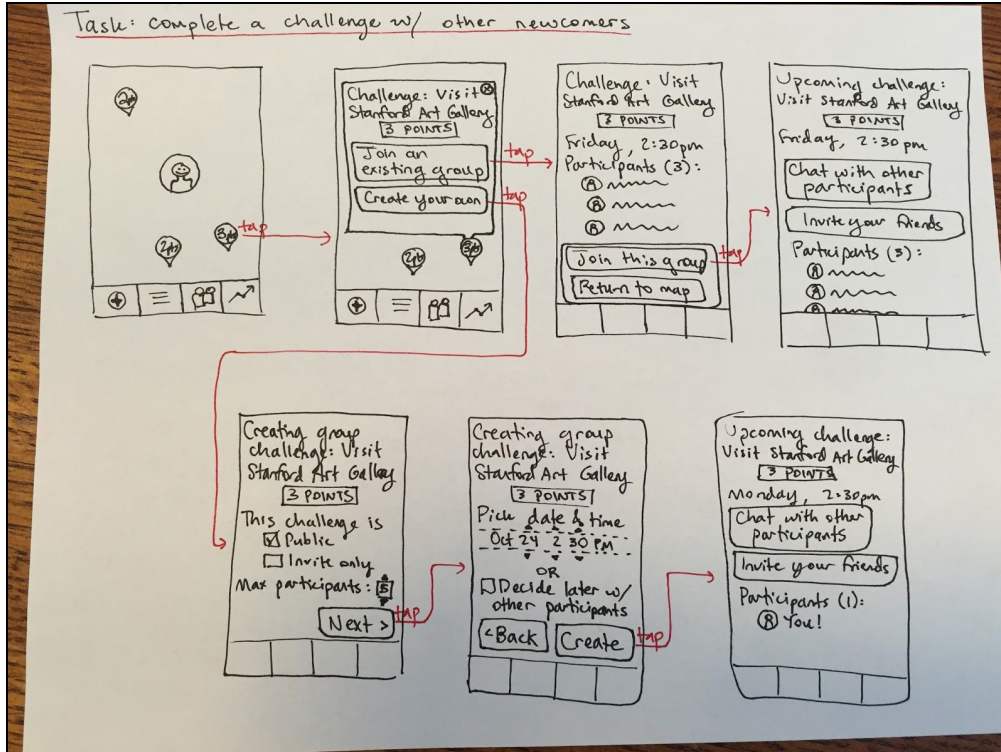 Task: complete a challenge w/ other newcomers
2pt
2pts
3pts
tap
Challenge: Visit
Stanford Art Gallery
3 POINTS
Join an
existing group
Create your own
2pts
3pts
tap
tap
Challenge: Visit
Stanford Art Gallery
3 POINTS
Friday, 2:30pm
Participants (3):
Join this group
Return to map
tap
Upcoming challenge:
Visit Stanford Art Gallery
3 POINTS
Friday, 2:30 pm
Chat with other
participants
Invite your friends
Participants (3):
Creating group
challenge: Visit
Stanford Art Gallery
3 POINTS
This challenge is
Public
Invite only
Max participants: 5
Next >
tap
Creating group
challenge: Visit
Stanford Art Gallery
3 POINTS
Pick date & time
Oct 24 2 30 PM
OR
Decide later w/
other participants
<Back
Create
tap
Upcoming challenge:
Visit Stanford Art Gallery
3 POINTS
Monday, 2:30pm
Chat with other
participants
Invite your friends
Participants (1):
You!